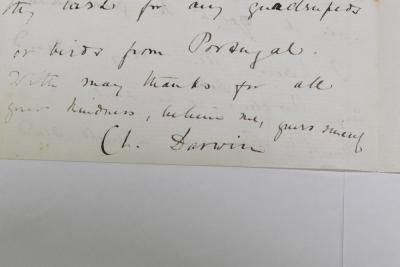 my task for any quadrupeds
or birds from Portugal.
With may thanks for all
your kindness, believe me, yours sincerely
Ch. Darwin